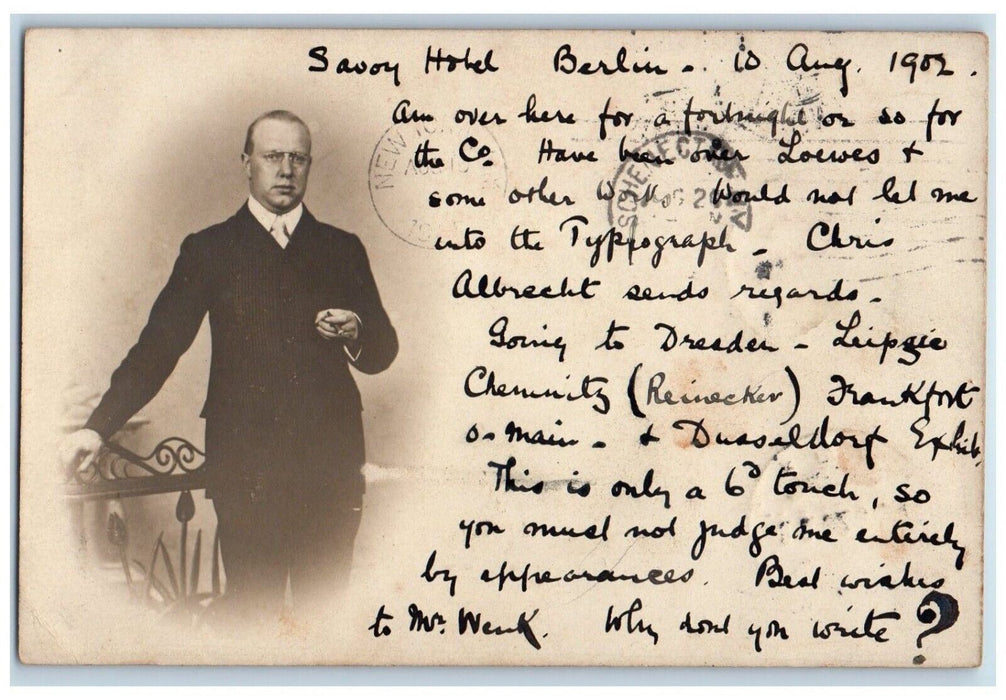 Savoy Hotel Berlin - 10 Aug. 1902.
Am over here for a fortnight or so for
the Co. Have been over Loewes +
some other Works. Would not let me
into the Typograph - Chris
Albrecht sends regards -
Going to Dresden - Leipzic
Chemnitz (Reinecker) Frankfort
o-main - + Dusseldorf Exhib.
This is only a 6d touch, so
you must not judge me entirely
by appearances. Best wishes
to Mr. Wenk. Why dont you write?
NEW YORK
SCHENECTADY